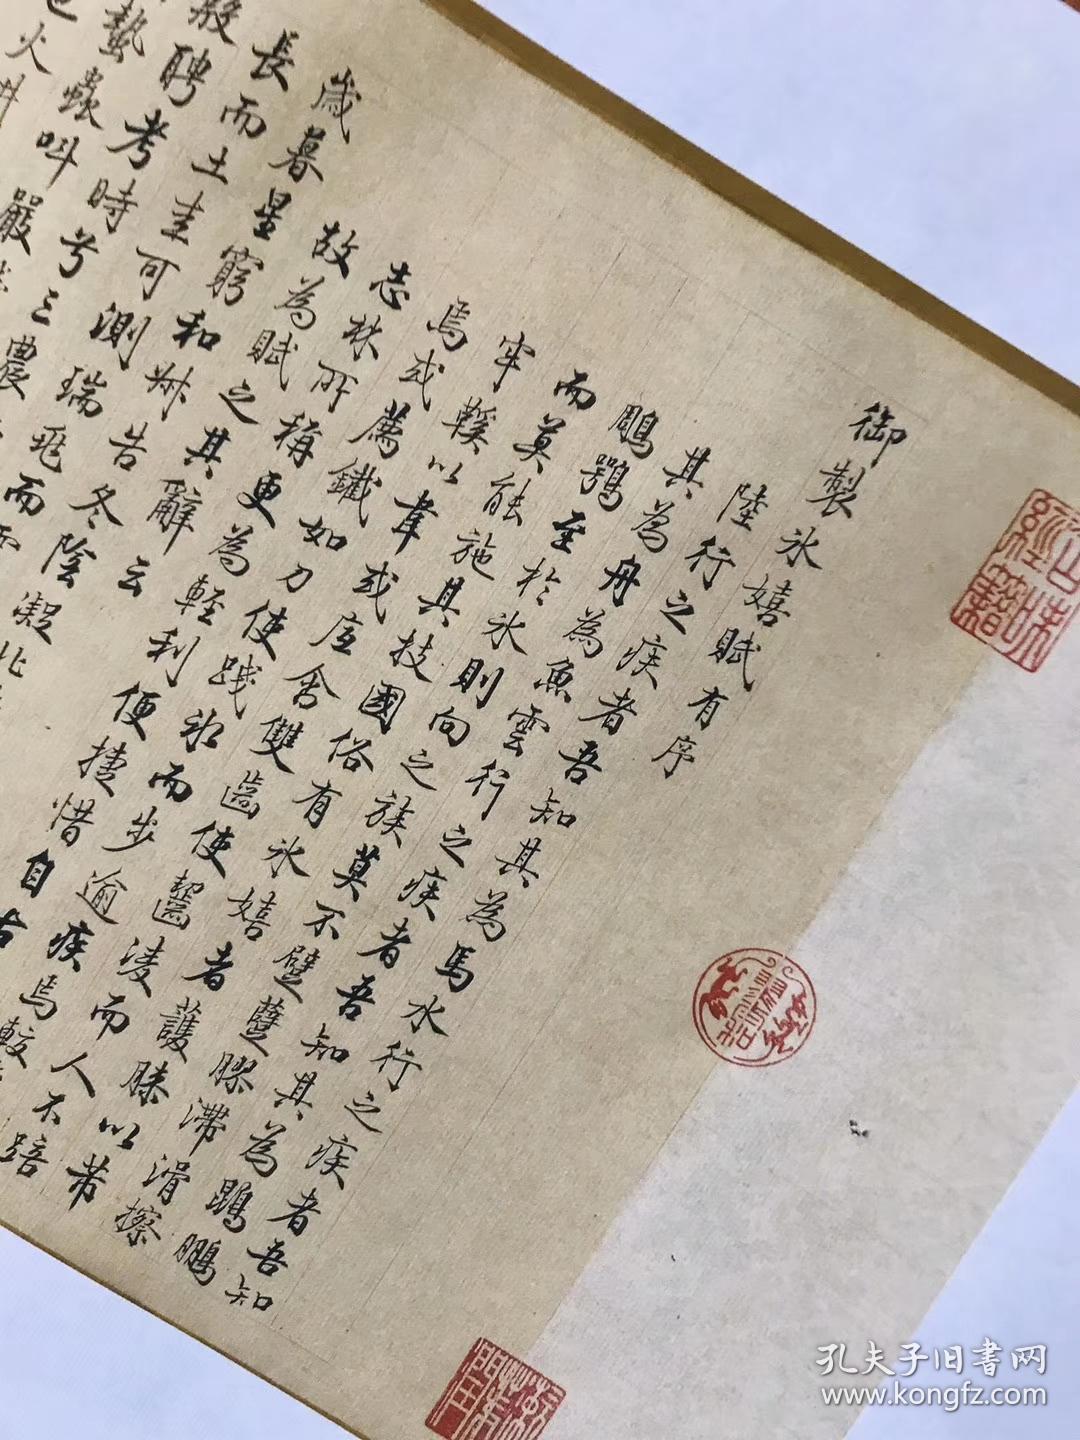 御製氷嬉賦有序
陸行之疾者吾知其為馬水行之疾者吾知
其為舟為魚雲行之疾者吾知其為鵾鵬
鵰鶚至於氷則向之族莫不躄躠膠滯滑擦
而莫能施其技國俗有氷嬉者護膝以芾
牢鞵以韋或底含雙齒使齧凌而人不踣
焉或薦鐵如刀使踐氷而步逾疾焉較
志林所稱更為輕利便捷惜自古
故為賦之其辭
歲暮星窮和叔告冬玄陰凝北
長而土圭可測瑞飛而
殷聘考時兮三農
蟄蟲叫嚴
火井
孔夫子旧书网
www.kongfz.com